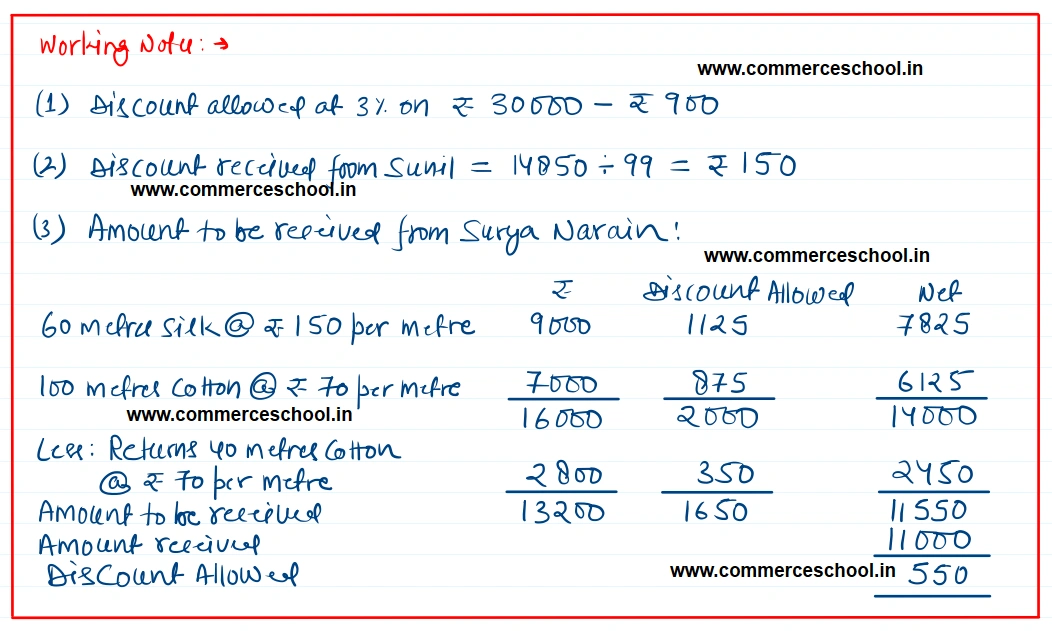 Working Note: →
www.commerceschool.in
(1) Discount allowed at 3% on ₹ 30000 - ₹ 900
(2) Discount received from Sunil = 14850 ÷ 99 = ₹ 150
www.commerceschool.in
(3) Amount to be received from Surya Narain:
www.commerceschool.in
₹ Discount Allowed Net
60 metre silk @ ₹ 150 per metre 9000 1125 7825
100 metres Cotton @ ₹ 70 per metre 7000 875 6125
www.commerceschool.in 16000 2000 14000
Less: Returns 40 metres Cotton
@ ₹ 70 per metre 2800 350 2450
Amount to be received 13200 1650 11550
Amount received 11000
Discount Allowed www.commerceschool.in 550